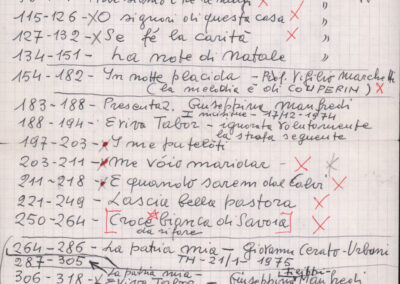 115-126-XO signori di questa casa X "
127-132-X Se fé la carità X "
134-151- La note di natale "
154-182- In notte placida - Prof. Vigilio
(la melodia è di COUPERIN) X
183-188- Presentaz. Giuseppina Manfredi
I 17/12-1974
188-194- Eviva Tabor - ignorata volutamente
la strofa seguente
197-203-X I me putelóti
203-211-X Me vóio maridar X X
211-218-X E quando sarem dal X X
221-249- Lascia bella pastora X
250-264- [Croce bianca di Savoia] X
da rifare
264-286- La patria mia - Giovanni Cerato-Urbani
287-305 TH-21/1-1975
La patria mia-
306-318-X Eviva Tabor- Giuseppina Manfredi